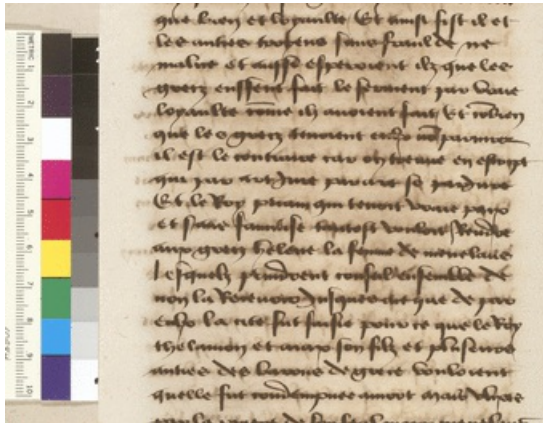 que bien et loyaulte Et ainsi fist il et
les aultres troyens sans fraulde ne
malice et aussi esperoient ilz que les
grecz eussent fait le serment par bonne
loyaulte come ilz avoient fait Et combien
que les grecz
il est le contraire car on treuve en escript
que par
Et le Roy priam qui tenoit paix
et vouloit Rendre
aux grecz helene la femme de menelaus
lesquelz prindrent conseil ensemble de
non la Recevoir Jusques ace que de par
eulx la cite fut saisie pour ce que le Roy
thelamon et aiax son filz et pluseurs
aultres des barons de grece vouloient
quelle fut condempnee a mort mais Ulixes